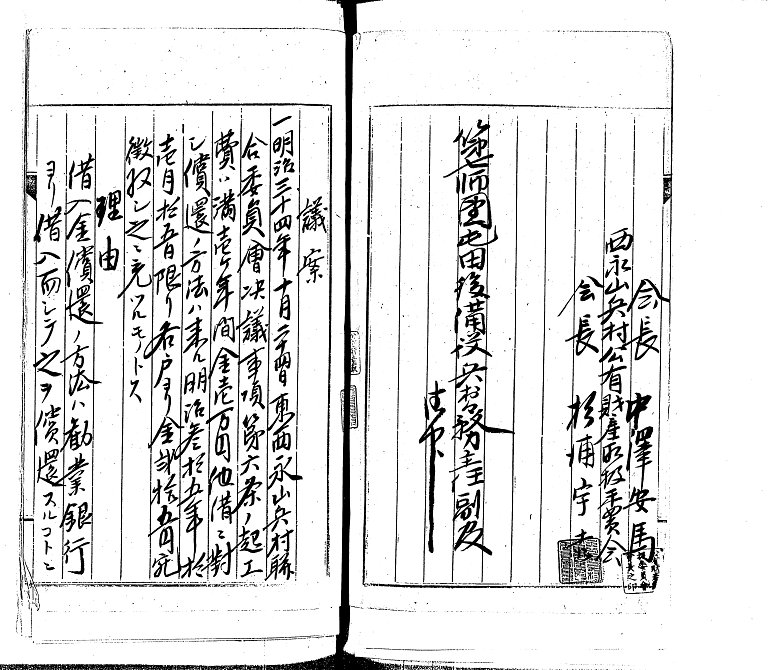 会長 中澤安馬
西永山兵村公有財産取扱委員会
会長 杉浦宇
第七師団屯田後備役兵村務主任副及
議案
一明治三十四年十月二十四日東西永山兵村聯
合委員會决議事項第六条ノ起工
費ハ満壱ヶ年間金壱万円他借ニ對
シ償還ノ方法ハ来ル明治参拾五年拾
壱月拾五日限リ各戸ヨリ金弐拾五円宛
徴収シ之ニ充ツルモノトス
理由
借入金償還ノ方法ハ勧業銀行
ヨリ借入而シテ之ヲ償還スルコトニ